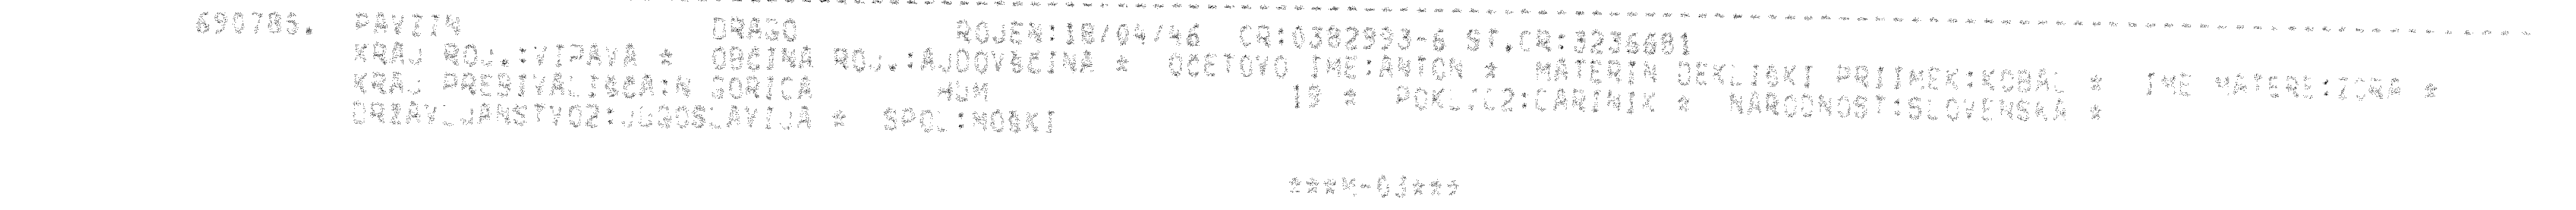 690785. PAVIIN DRAGO ROJEN:18/04/46 CR:0382993-6 ST.CR:3236681
KRAJ ROJ.:VIPAVA * OBEINA ROJ.:AJDOVSEINA * OCETOVO IME:ANTON * MATERIN DEKLISKI PRIIMEK:KOBAL * IME MATERE:ZORA *
KRAJ PREBIVALISEA:N GORICA HUM 19 * POKLIC2:CARINIK * NARODNOST:SLOVENSKA *
DRZAVLJANSTVO2:JUGOSLAVIJA * SPOL:MOSKI
***M-03***